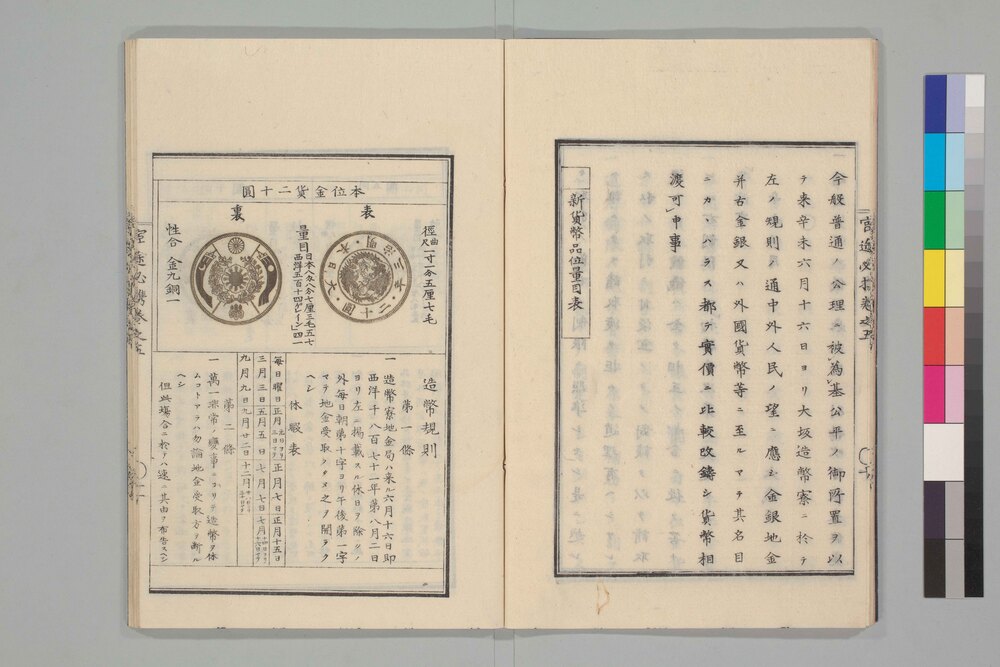 今般普通ノ公理ニ被爲基公平ノ御所置ヲ以
テ來辛未六月十六日ヨリ大坂造幣寮ニ於テ
左ノ規則ノ通中外人民ノ望ニ應シ金銀地金
并古金銀又ハ外國貨幣等ニ至ルマテ其名目
ニカヽハラス都テ實價ニ比較改鋳シ貨幣相
渡可申事
新貨幣品位量目表
本位金貨二十圓
表
徑曲尺一寸一分五厘七毛
裏
量目日本八匁八分七厘三毛五七
西洋五百十四グレイン四一
性合 金九銅一
大日本
明治三年
二十圓
造幣規則
第一條
一 造幣寮地金局ハ來ル六月十六日即
西洋千八百七十一年第八月二日
ヨリ左ニ掲載スル休日ヲ除クノ
外毎日朝第十字ヨリ午後第一字
マテ地金受取ノタメ之ヲ開ラク
ヘシ
休暇表
毎日曜日 正月 正月七日 正月十五日
三月三日 五月五日 七月七日 七月
九月九日 九月廿二日 十二月
第二條
一 萬一非常ノ變事ニヨリテ造幣ヲ休
ムコトアラハ勿論地金受取方ヲ斷ル
ヘシ
但此塲合ニ於テハ速ニ其由ヲ布告スヘシ